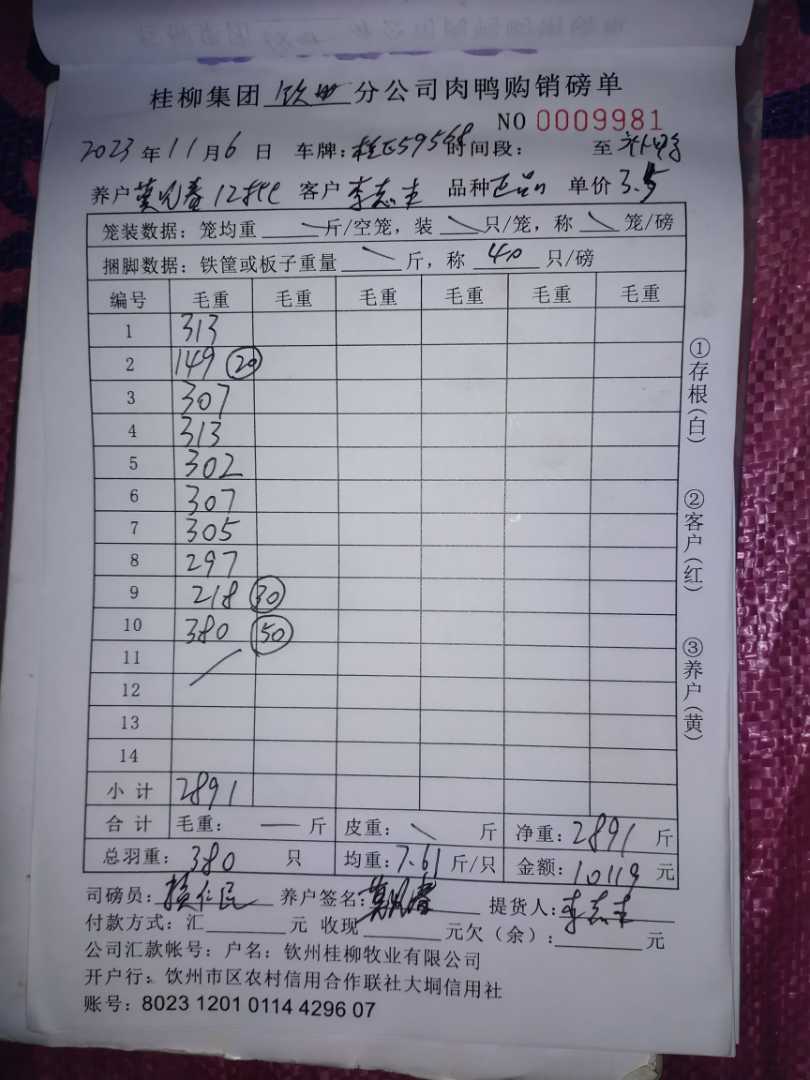 桂柳集团 钦州 分公司肉鸭购销磅单
NO 0009981
2023 年 11 月 6 日 车牌:桂 59568 时间段: 至
养户 春 客户 李志 品种 正品 单价 3.5
笼装数据: 笼均重 斤/空笼, 装 只/笼, 称 笼/磅
捆脚数据: 铁筐或板子重量 斤, 称 40 只/磅
编号 毛重 毛重 毛重 毛重 毛重 毛重
1 313
2 149 20
3 307
4 313
5 302
6 307
7 305
8 297
9 218 30
10 380 50
11
12
13
14
小计 2891
合计 毛重: 斤 皮重: 斤 净重: 2891 斤
总羽重: 380 只 均重: 7.61 斤/只 金额: 10119 元
司磅员: 养户签名: 春 提货人: 李志
付款方式: 汇 元 收现 元欠(余): 元
公司汇款帐号: 户名: 钦州桂柳牧业有限公司
开户行: 钦州市区农村信用合作联社大垌信用社
账号: 8023 1201 0114 4296 07
①存根(白)
②客户(红)
③养户(黄)